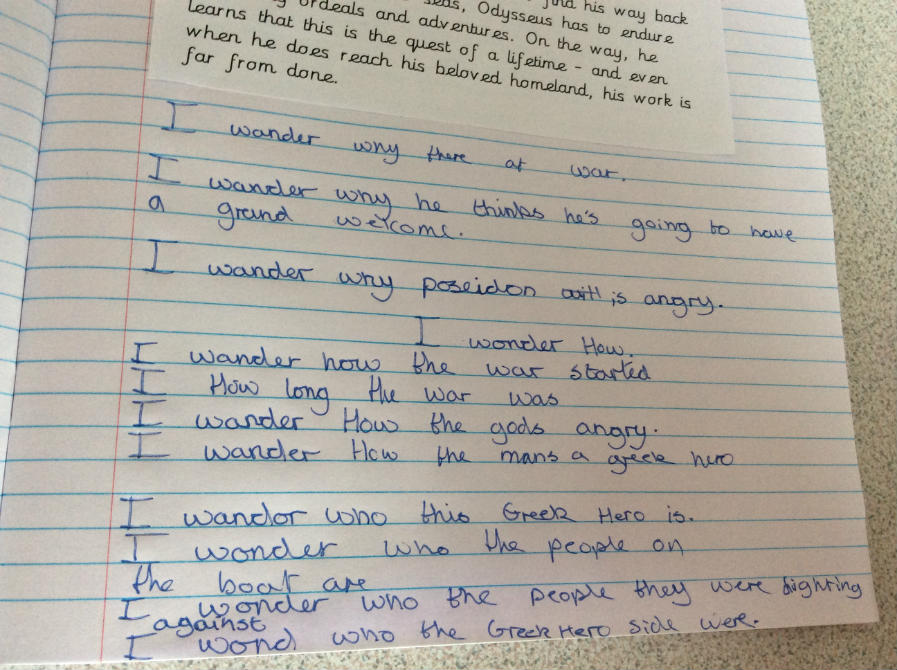 find his way back
ordeals and adventures. Odysseus has to endure
learns that this is the quest of a lifetime - and even
when he does reach his beloved homeland, his work is
far from done.
I wander why there at war.
I wander why he thinks he's going to have
a grand welcome.
I wander why poseidon is angry.
I wonder How.
I wander how the war started
I How long the war was
I wander How the gods angry.
I wander How the mans a greek hero
I wandor who this Greek Hero is.
I wonder who the people on
the boat are
I wonder who the people they were fighting
against
I wond who the Greek Hero side were.